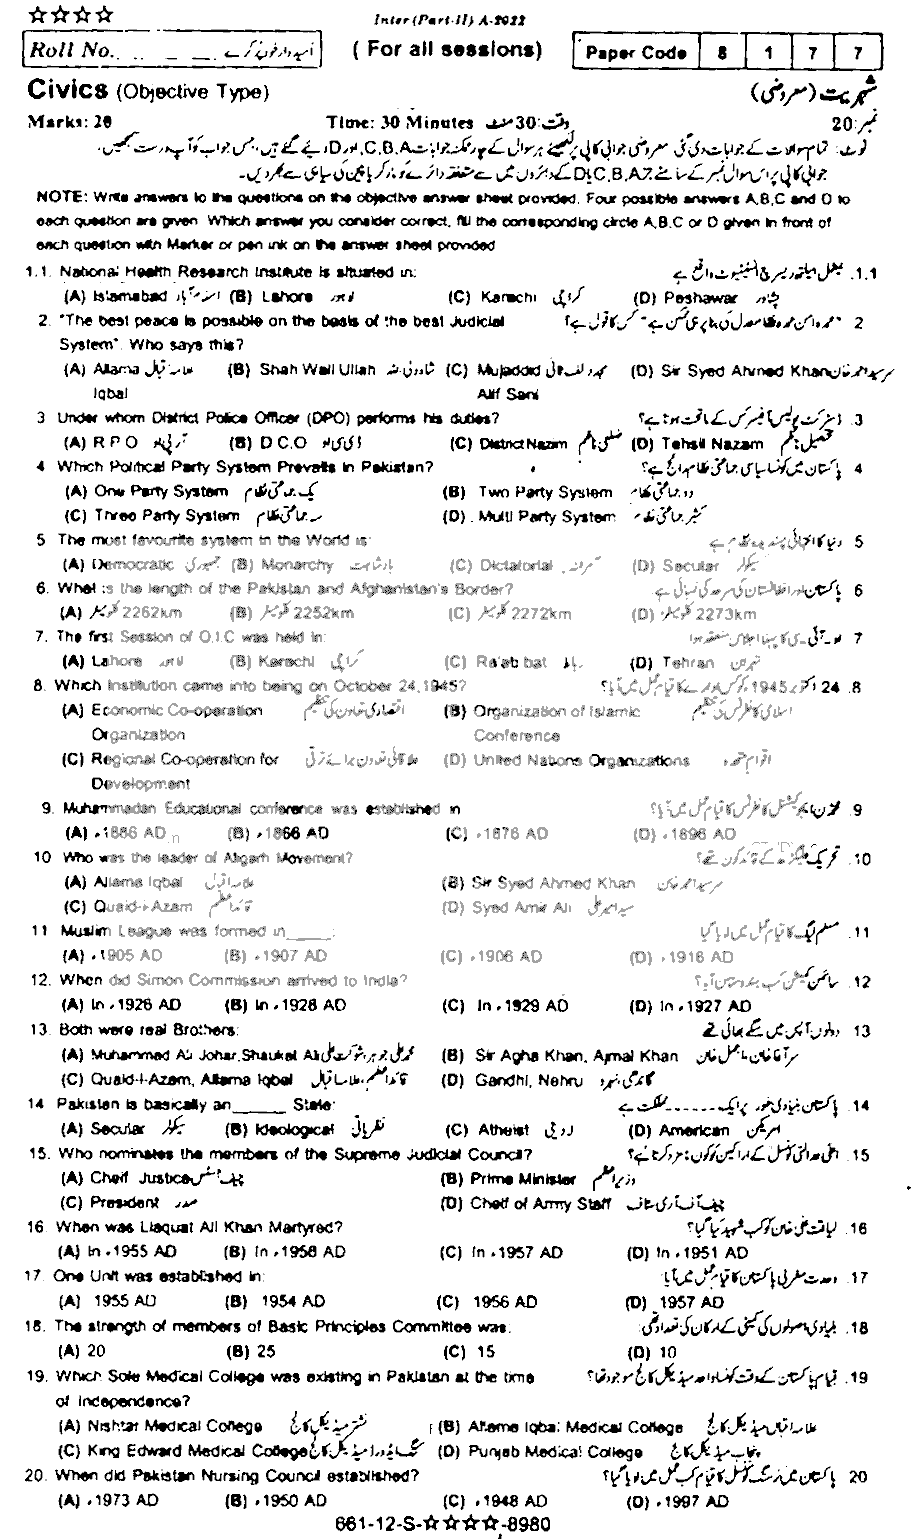 ☆☆☆☆
Inter (Part-II) A-2022
Roll No. _ _ _ امیدوار خود پُر کرے
( For all sessions)
Paper Code 8 1 7 7
Civics (Objective Type) شہریت (معروضی)
Marks: 20 Time: 30 Minutes وقت: 30 منٹ نمبر: 20
نوٹ: تمام سوالات کے جوابات دی گئی معروضی جوابی کاپی پر لکھیے ہر سوال کے چار ممکنہ جوابات A,B,C اور D دیے گئے ہیں۔ جس جواب کو آپ درست سمجھیں،
جوابی کاپی پر اس سوال نمبر کے سامنے A,B,C یا D کے دائروں میں سے متعلقہ دائرے کو مارکر یا پین کی سیاہی سے بھر دیں۔
NOTE: Write answers to the questions on the objective answer sheet provided. Four possible answers A,B,C and D to
each question are given Which answer you consider correct, fill the corresponding circle A,B,C or D given in front of
each question with Marker or pen ink on the answer sheet provided
1.1. National Health Research Institute is situated in: نیشنل ہیلتھ ریسرچ انسٹیٹیوٹ واقع ہے .1.1
(A) Islamabad اسلام آباد (B) Lahore لاہور (C) Karachi کراچی (D) Peshawar پشاور
2. "The best peace is possible on the basis of the best Judicial "عمدہ امن عمدہ نظام عدل کی بنا پر ہی ممکن ہے" کس کا قول ہے؟ 2
System". Who says this?
(A) Allama علامہ اقبال (B) Shah Wali Ullah شاہ ولی اللہ (C) Mujaddid مجدد الف ثانی (D) Sir Syed Ahmed Khan سرسید احمد خان
Iqbal Alif Sani
3 Under whom District Police Officer (DPO) performs his duties? ڈسٹرکٹ پولیس آفیسر کس کے ماتحت ہوتا ہے؟ .3
(A) R P O آر پی او (B) D C.O ڈی سی او (C) District Nazim ضلعی ناظم (D) Tehsil Nazam تحصیل ناظم
4 Which Political Party System Prevails in Pakistan? پاکستان میں کونسا سیاسی جماعتی نظام رائج ہے؟ 4
(A) One Party System یک جماعتی نظام (B) Two Party System دو جماعتی نظام
(C) Three Party System سہ جماعتی نظام (D) . Multi Party System کثیر جماعتی نظام
5 The most favourite system in the World is: دنیا کا انتہائی پسندیدہ نظام ہے 5
(A) Democratic جمہوری (B) Monarchy بادشاہت (C) Dictatorial آمرانہ (D) Secular سیکولر
6. What is the length of the Pakistan and Afghanistan's Border? پاکستان اور افغانستان کی سرحد کی لمبائی ہے 6
(A) کلومیٹر 2262km (B) کلومیٹر 2252km (C) کلومیٹر 2272km (D) کلومیٹر 2273km
7. The first Session of O.I.C was held in: او۔آئی۔سی کا پہلا اجلاس منعقد ہوا 7
(A) Lahore لاہور (B) Karachi کراچی (C) Ra'ab bat رباط (D) Tehran تہران
8. Which Institution came into being on October 24,1945? 24 اکتوبر 1945ء کو کس ادارے کا قیام عمل میں آیا؟ .8
(A) Economic Co-operation اقتصادی تعاون کی تنظیم (B) Organization of Islamic اسلامی کانفرنس کی تنظیم
Organization Conference
(C) Regional Co-operation for علاقائی تعاون برائے ترقی (D) United Nations Organizations اقوام متحدہ
Development
9. Muhammadan Educational conference was established in محمڈن ایجوکیشنل کانفرنس کا قیام عمل میں آیا؟ .9
(A) ء1886 AD (B) ء1866 AD (C) ء1876 AD (D) ء1896 AD
10 Who was the leader of Aligarh Movement? تحریک علیگڑھ کے قائد کون تھے؟ .10
(A) Allama Iqbal علامہ اقبال (B) Sir Syed Ahmed Khan سرسید احمد خان
(C) Quaid-i-Azam قائداعظم (D) Syed Amir Ali سید امیر علی
11 Muslim League was formed in_____: مسلم لیگ کا قیام عمل میں لایا گیا .11
(A) ء1905 AD (B) ء1907 AD (C) ء1906 AD (D) ء1916 AD
12. When did Simon Commission arrived to India? سائمن کمیشن کب ہندوستان آیا؟ .12
(A) In ء1926 AD (B) In ء1928 AD (C) In ء1929 AD (D) In ء1927 AD
13. Both were real Brothers: دونوں آپس میں سگے بھائی تھے 13
(A) Muhammad Ali Johar,Shaukat Ali محمد علی جوہر، شوکت علی (B) Sir Agha Khan, Ajmal Khan سر آغا خان، اجمل خان
(C) Quaid-i-Azam, Allama Iqbal قائداعظم، علامہ اقبال (D) Gandhi, Nehru گاندھی، نہرو
14 Pakistan is basically an______ State: پاکستان بنیادی طور پر ایک ...... مملکت ہے .14
(A) Secular سیکولر (B) Ideological نظریاتی (C) Atheist لادینی (D) American امریکن
15. Who nominates the members of the Supreme Judicial Council? اعلیٰ عدالتی کونسل کے اراکین کو کون نامزد کرتا ہے؟ .15
(A) Cheif Justice چیف جسٹس (B) Prime Minister وزیراعظم
(C) President صدر (D) Cheif of Army Staff چیف آف آرمی سٹاف
16. When was Liaquat Ali Khan Martyred? لیاقت علی خان کو کب شہید کیا گیا؟ .16
(A) In ء1955 AD (B) In ء1956 AD (C) In ء1957 AD (D) In ء1951 AD
17. One Unit was established in: وحدت مغربی پاکستان کا قیام عمل میں آیا: .17
(A) 1955 AD (B) 1954 AD (C) 1956 AD (D) 1957 AD
18. The strength of members of Basic Principles Committee was: بنیادی اصولوں کی کمیٹی کے ارکان کی تعداد تھی: .18
(A) 20 (B) 25 (C) 15 (D) 10
19. Which Sole Medical College was existing in Pakistan at the time قیام پاکستان کے وقت کونسا واحد میڈیکل کالج موجود تھا؟ .19
of Independence?
(A) Nishtar Medical College نشتر میڈیکل کالج (B) Allama Iqbal Medical College علامہ اقبال میڈیکل کالج
(C) King Edward Medical College کنگ ایڈورڈ میڈیکل کالج (D) Punjab Medical College پنجاب میڈیکل کالج
20. When did Pakistan Nursing Council established? پاکستان میں نرسنگ کونسل کا قیام کب عمل میں لایا گیا؟ 20
(A) ء1973 AD (B) ء1950 AD (C) ء1948 AD (D) ء1997 AD
661-12-S-☆☆☆☆-8980